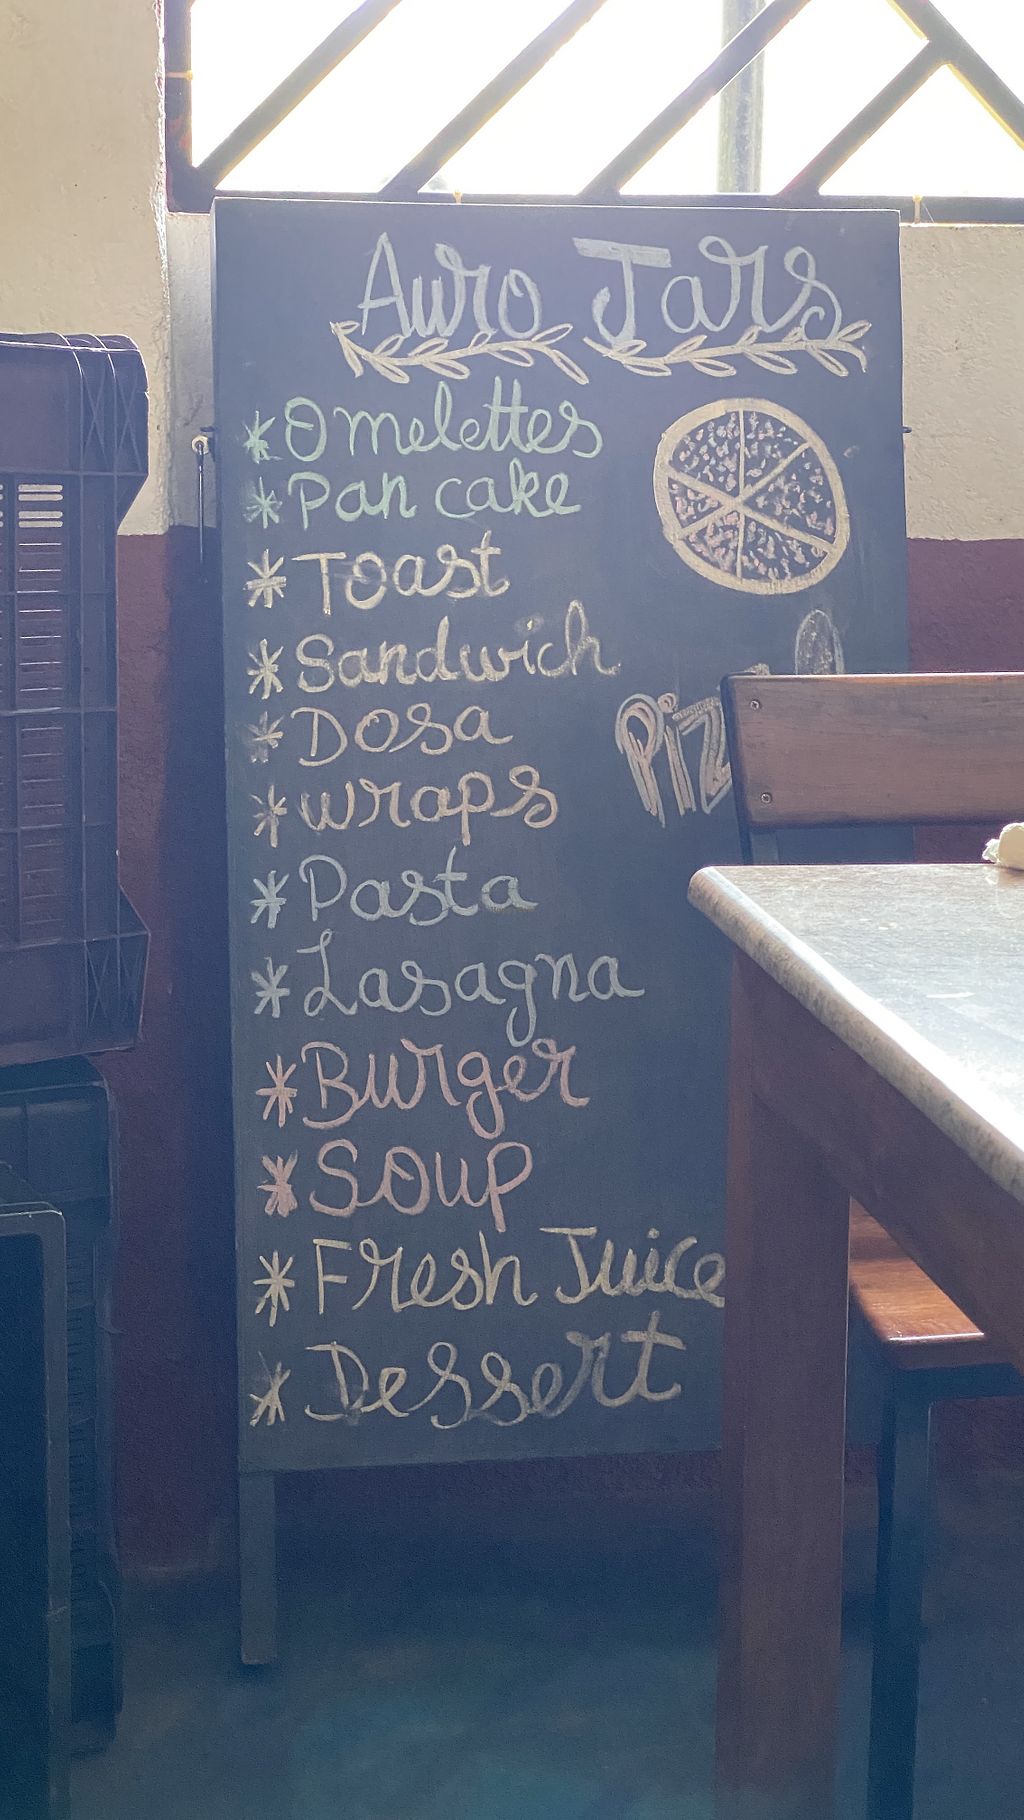 Auro Jars
* Omelettes
* Pan cake
* Toast
* Sandwich
* Dosa
* wraps
* Pasta
* Lasagna
* Burger
* Soup
* Fresh Juice
* Dessert